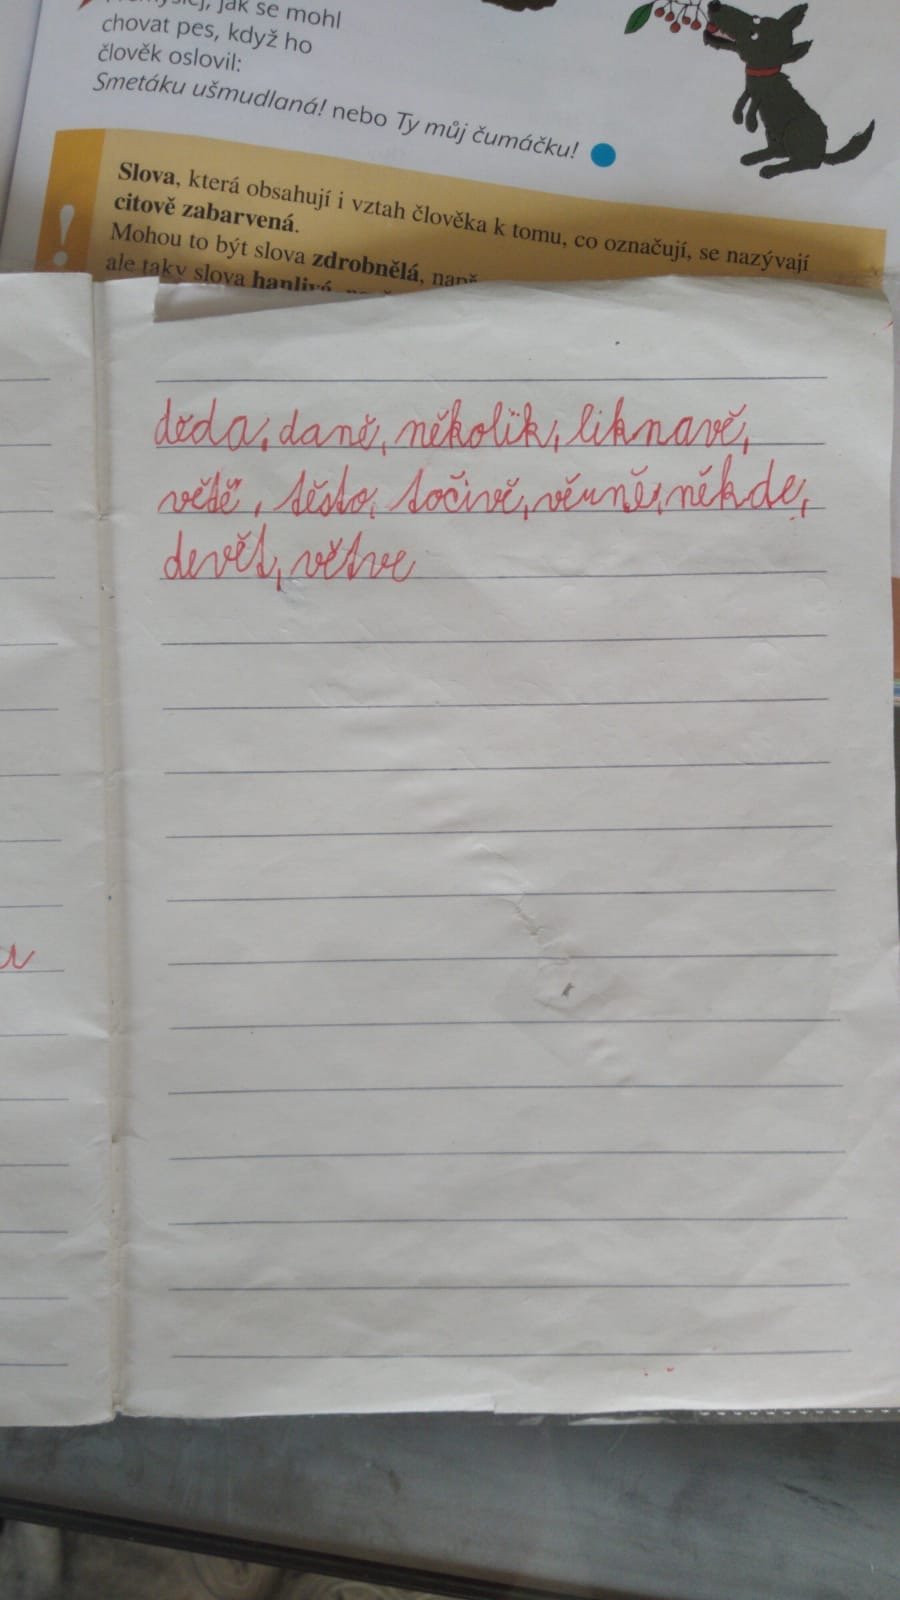 jak se mohl
chovat pes, když ho
člověk oslovil:
Smetáku ušmudlaná! nebo Ty můj čumáčku!
!
Slova, která obsahují i vztah člověka k tomu, co označují, se nazývají
citově zabarvená.
Mohou to být slova zdrobnělá, např
ale taky slova hanlivá,
děda, daně, několik, liknavě,
těsto, točivě, věrně, někde,
devět, větve